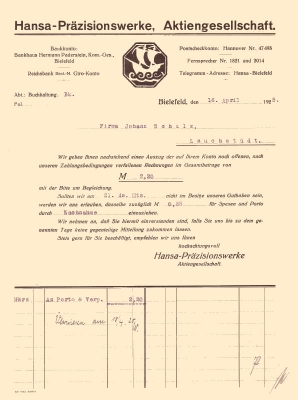 Hansa-Präzisionswerke, Aktiengesellschaft.
Bankkonto:
Bankhaus Hermann Paderstein, Kom.-Ges.,
Bielefeld
Reichsbank Giro-Konto
Postscheckkonto: Hannover Nr. 47495
Fernsprecher Nr. 1821 und 3014
Telegramm-Adresse: Hansa-Bielefeld
Abt.: Buchhaltung
Bielefeld, den 12. April 192
Firma Johann Schulz,
Lauchstädt.
Wir geben Ihnen nachstehend einen Auszug der auf Ihrem Konto noch offenen, nach
unseren Zahlungsbedingungen verfallenen Rechnungen im Gesamtbetrage von
M 2,20
mit der Bitte um Begleichung.
Sollten wir am 21. ds. Mts. nicht im Besitze unseres Guthaben sein,
werden wir uns erlauben, dasselbe zuzüglich M für Spesen und Porto
durch Nachnahme einzuziehen.
Wir nehmen an, daß Sie hiermit einverstanden sind, falls Sie uns bis zu dem ge-
nannten Tage keine gegenteilige Mitteilung zukommen lassen.
Stets gern für Sie beschäftigt, empfehlen wir uns Ihnen
hochachtungsvoll
Hansa-Präzisionswerke
Aktiengesellschaft
März an Porto & Verp. 2,20